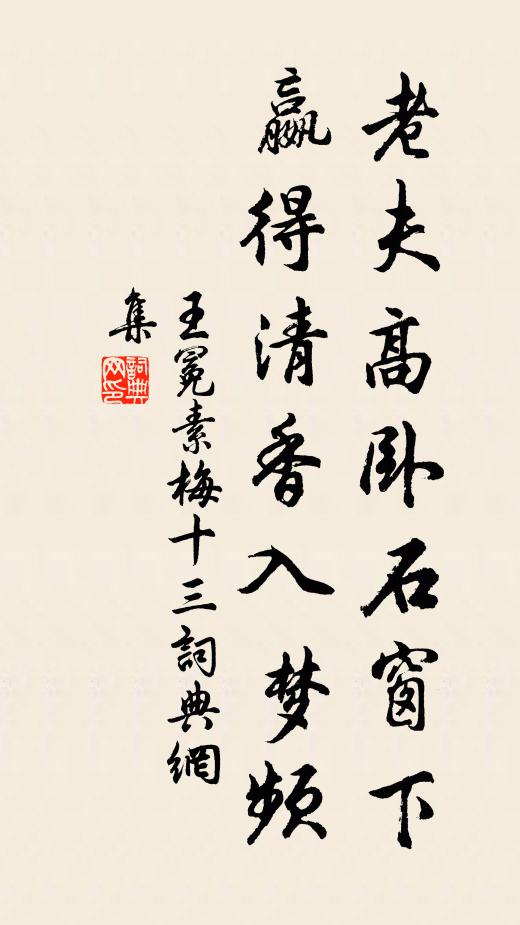 老夫高卧石窗下
赢得清香入梦频
王冕素梅十三詞典網
集
詞典
网印